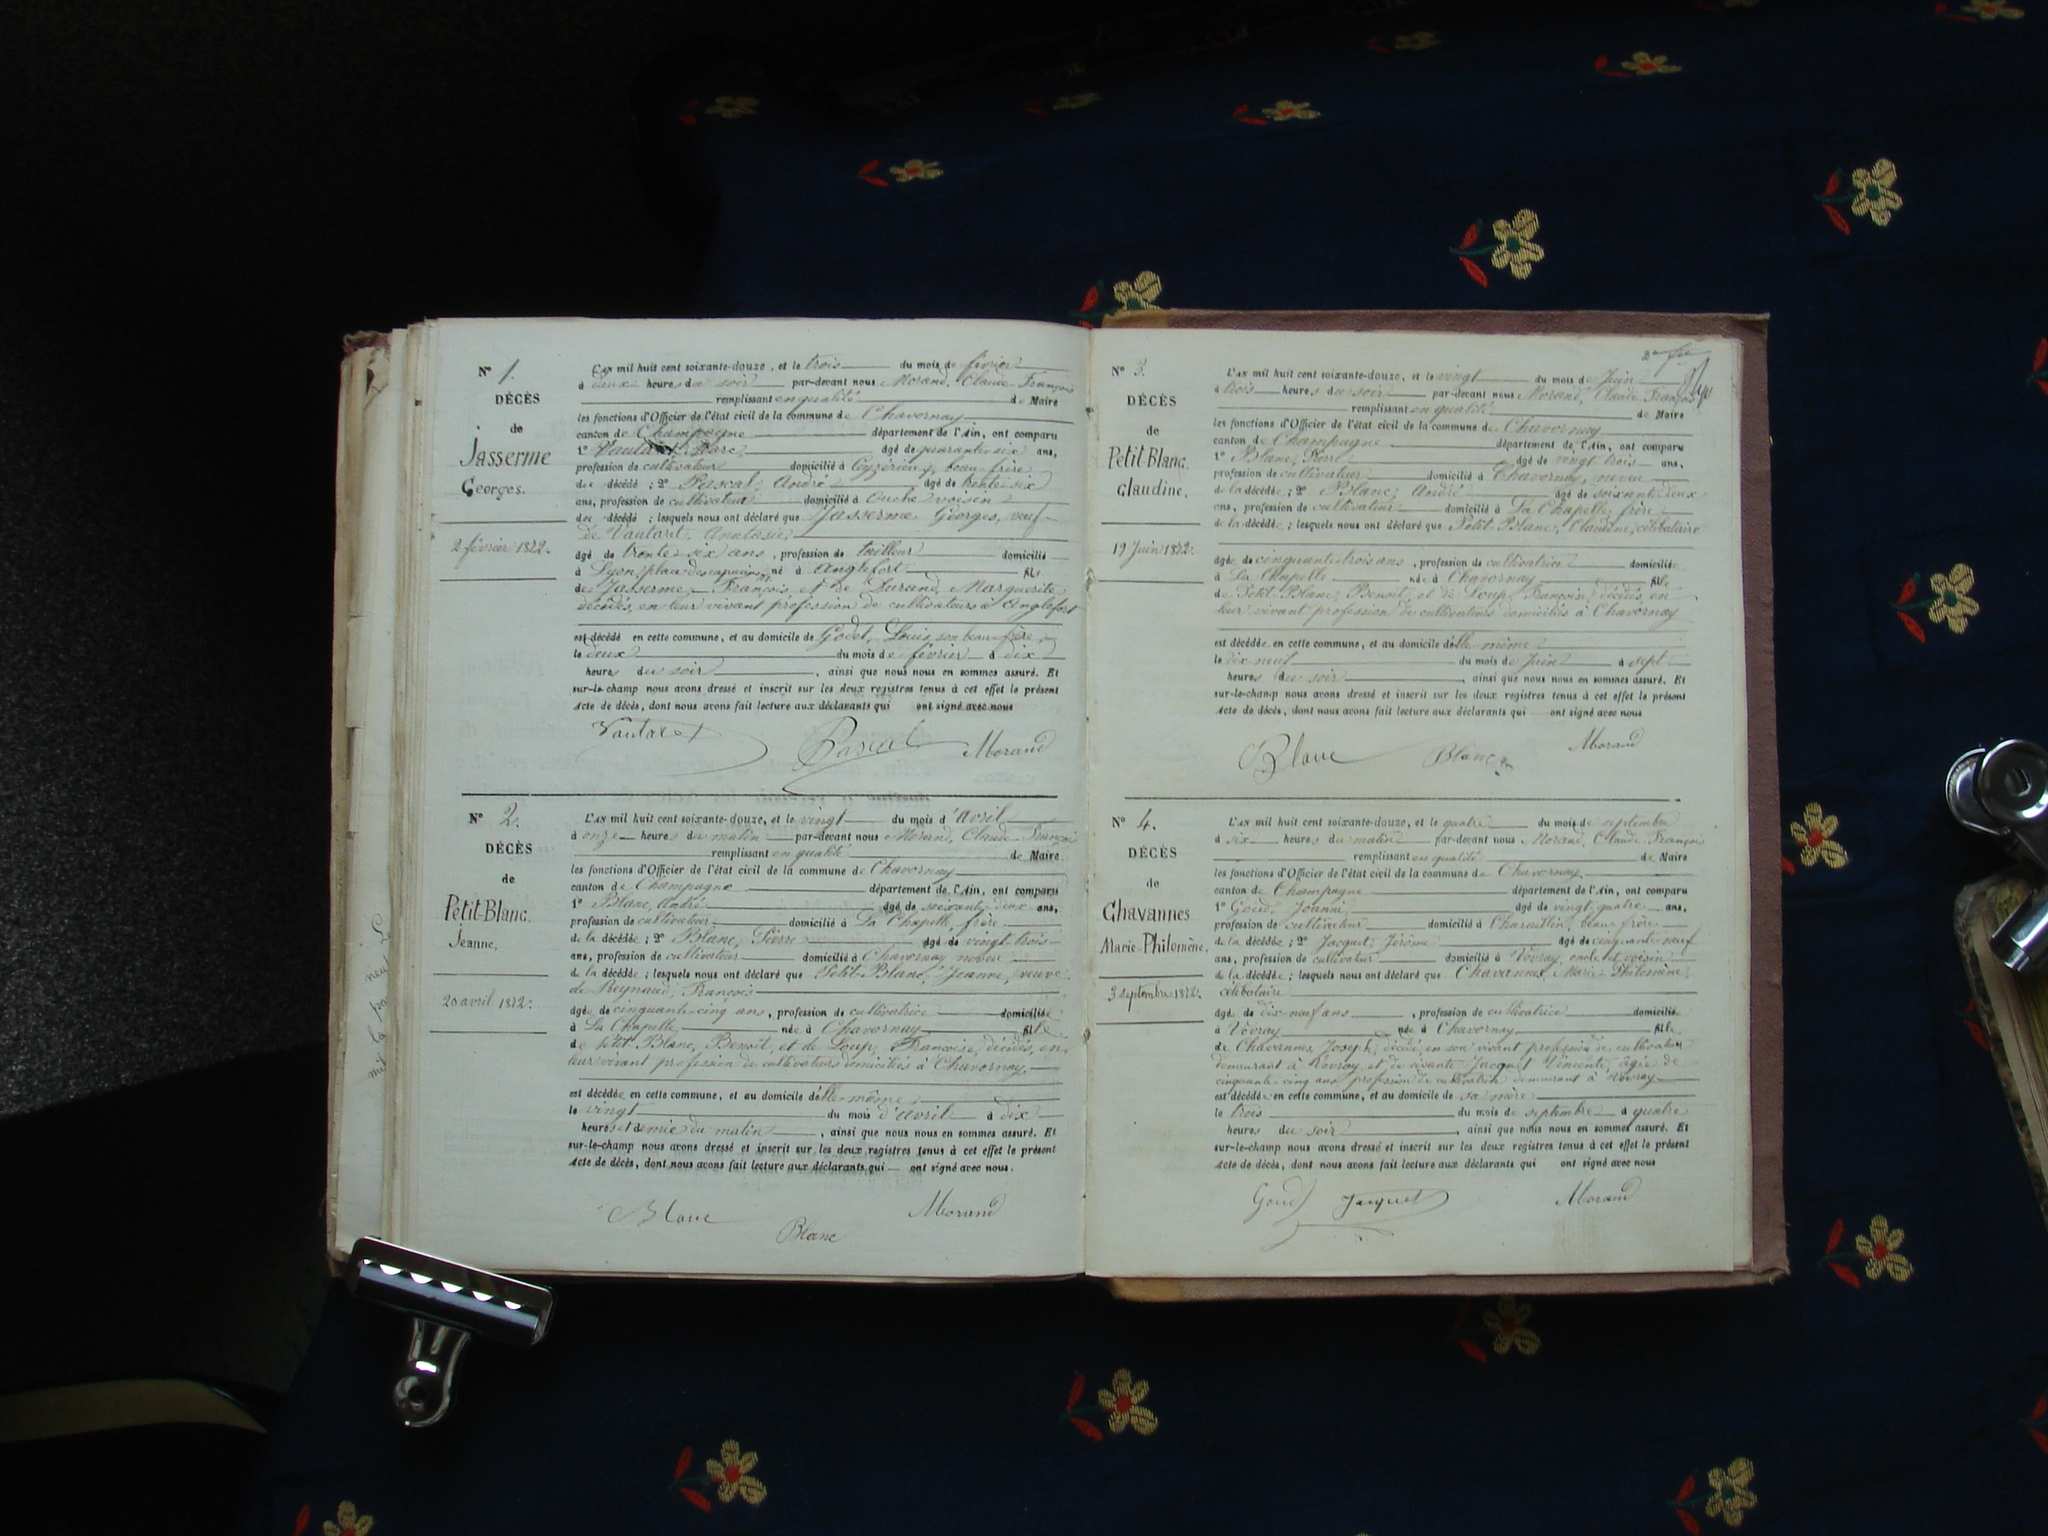 N° 1.
DÉCÈS
de
Jasserme
Georges.
2 février 1872.
L'AN mil huit cent soixante-douze, et le trois du mois de février
à deux heures du soir par-devant nous Morand, Claude François
remplissant en qualité de Maire
les fonctions d'Officier de l'état civil de la commune de Chavornay
canton de Champagne département de l'Ain, ont comparu
1° Vautaret, Marc, âgé de quarante six ans,
profession de cultivateur domicilié à Ceyzérieu, beau frère
du décédé ; 2° Pascal, André âgé de trente six
ans, profession de cultivateur domicilié à voisin
du décédé ; lesquels nous ont déclaré que Jasserme Georges, veuf
de Vautaret, Anatasie
âgé de trente-six ans, profession de tailleur domicilié
à Lyon, place des capucins, né à Anglefort fils
de Jasserme François et de Durand, Marguerite
décédés, en leur vivant profession de cultivateurs à Anglefort
est décédé en cette commune, et au domicile de Godet, Louis, son beau frère
le deux du mois de février à dix
heures du soir, ainsi que nous nous en sommes assuré. Et
sur-le-champ nous avons dressé et inscrit sur les deux registres tenus à cet effet le présent
acte de décès, dont nous avons fait lecture aux déclarants qui ont signé avec nous
Vautaret Pascal Morand
N° 2.
DÉCÈS
de
Petit-Blanc.
Jeanne.
20 avril 1872.
L'AN mil huit cent soixante-douze, et le vingt du mois d'avril
à onze heures du matin par-devant nous Morand, Claude François
remplissant en qualité de Maire
les fonctions d'Officier de l'état civil de la commune de Chavornay
canton de Champagne département de l'Ain, ont comparu
1° Blanc, André âgé de soixante-deux ans,
profession de cultivateur domicilié à La Chapelle, frère
de la décédée ; 2° Blanc, Pierre âgé de vingt trois
ans, profession de cultivateur domicilié à Chavornay neveu
de la décédée ; lesquels nous ont déclaré que Petit-Blanc, Jeanne, veuve
de Reynaud, François
âgée de cinquante cinq ans, profession de cultivatrice domiciliée
à La Chapelle née à Chavornay fille
de Petit-Blanc, Benoît, et de Loup, Françoise, décédés, en
leur vivant profession de cultivateurs domiciliés à Chavornay
est décédée en cette commune, et au domicile d'elle-même
le vingt du mois d'avril à dix
heures et demie du matin, ainsi que nous nous en sommes assuré. Et
sur-le-champ nous avons dressé et inscrit sur les deux registres tenus à cet effet le présent
acte de décès, dont nous avons fait lecture aux déclarants qui ont signé avec nous.
Blanc Blanc Morand
N° 3.
DÉCÈS
de
Petit-Blanc.
Claudine.
19 Juin 1872.
L'AN mil huit cent soixante-douze, et le vingt du mois de Juin
à trois heures du soir par-devant nous Morand, Claude François
remplissant en qualité de Maire
les fonctions d'Officier de l'état civil de la commune de Chavornay
canton de Champagne département de l'Ain, ont comparu
1° Blanc, Pierre âgé de vingt trois ans,
profession de cultivateur domicilié à Chavornay, neveu
de la décédée ; 2° Blanc, André âgé de soixante-deux
ans, profession de cultivateur domicilié à La Chapelle, frère
de la décédée ; lesquels nous ont déclaré que Petit-Blanc, Claudine, célibataire
âgée de cinquante-trois ans, profession de cultivatrice domiciliée
à La Chapelle née à Chavornay fille
de Petit-Blanc, Benoît, et de Loup, Françoise, décédés en
leur vivant profession de cultivateurs domiciliés à Chavornay
est décédée en cette commune, et au domicile d'elle même
le dix neuf du mois de Juin à sept
heures du soir, ainsi que nous nous en sommes assuré. Et
sur-le-champ nous avons dressé et inscrit sur les deux registres tenus à cet effet le présent
acte de décès, dont nous avons fait lecture aux déclarants qui ont signé avec nous
Blanc Blanc Morand
N° 4.
DÉCÈS
de
Chavannes
Marie-Philomène.
3 septembre 1872.
L'AN mil huit cent soixante-douze, et le quatre du mois de septembre
à six heures du matin par-devant nous Morand, Claude François
remplissant en qualité de Maire
les fonctions d'Officier de l'état civil de la commune de Chavornay
canton de Champagne département de l'Ain, ont comparu
1° Goud, Joanni, âgé de vingt-quatre ans,
profession de cultivateur domicilié à Charaillin, beau frère
de la décédée ; 2° Jacquet, Jérôme âgé de cinquante-neuf
ans, profession de cultivateur domicilié à Vovray, oncle et voisin
de la décédée ; lesquels nous ont déclaré que Chavannes, Marie-Philomène,
célibataire
âgée de dix-neuf ans, profession de cultivatrice domiciliée
à Vovray née à Chavornay fille
de Chavannes, Joseph, décédé, en son vivant profession de cultivateur
demeurant à Vovray, et de vivante Jacquet Vincente, âgée de
cinquante cinq ans profession de cultivatrice demeurant à Vovray
est décédée en cette commune, et au domicile de sa mère
le trois du mois de septembre à quatre
heures du soir, ainsi que nous nous en sommes assuré. Et
sur-le-champ nous avons dressé et inscrit sur les deux registres tenus à cet effet le présent
acte de décès, dont nous avons fait lecture aux déclarants qui ont signé avec nous
Goud Jacquet Morand